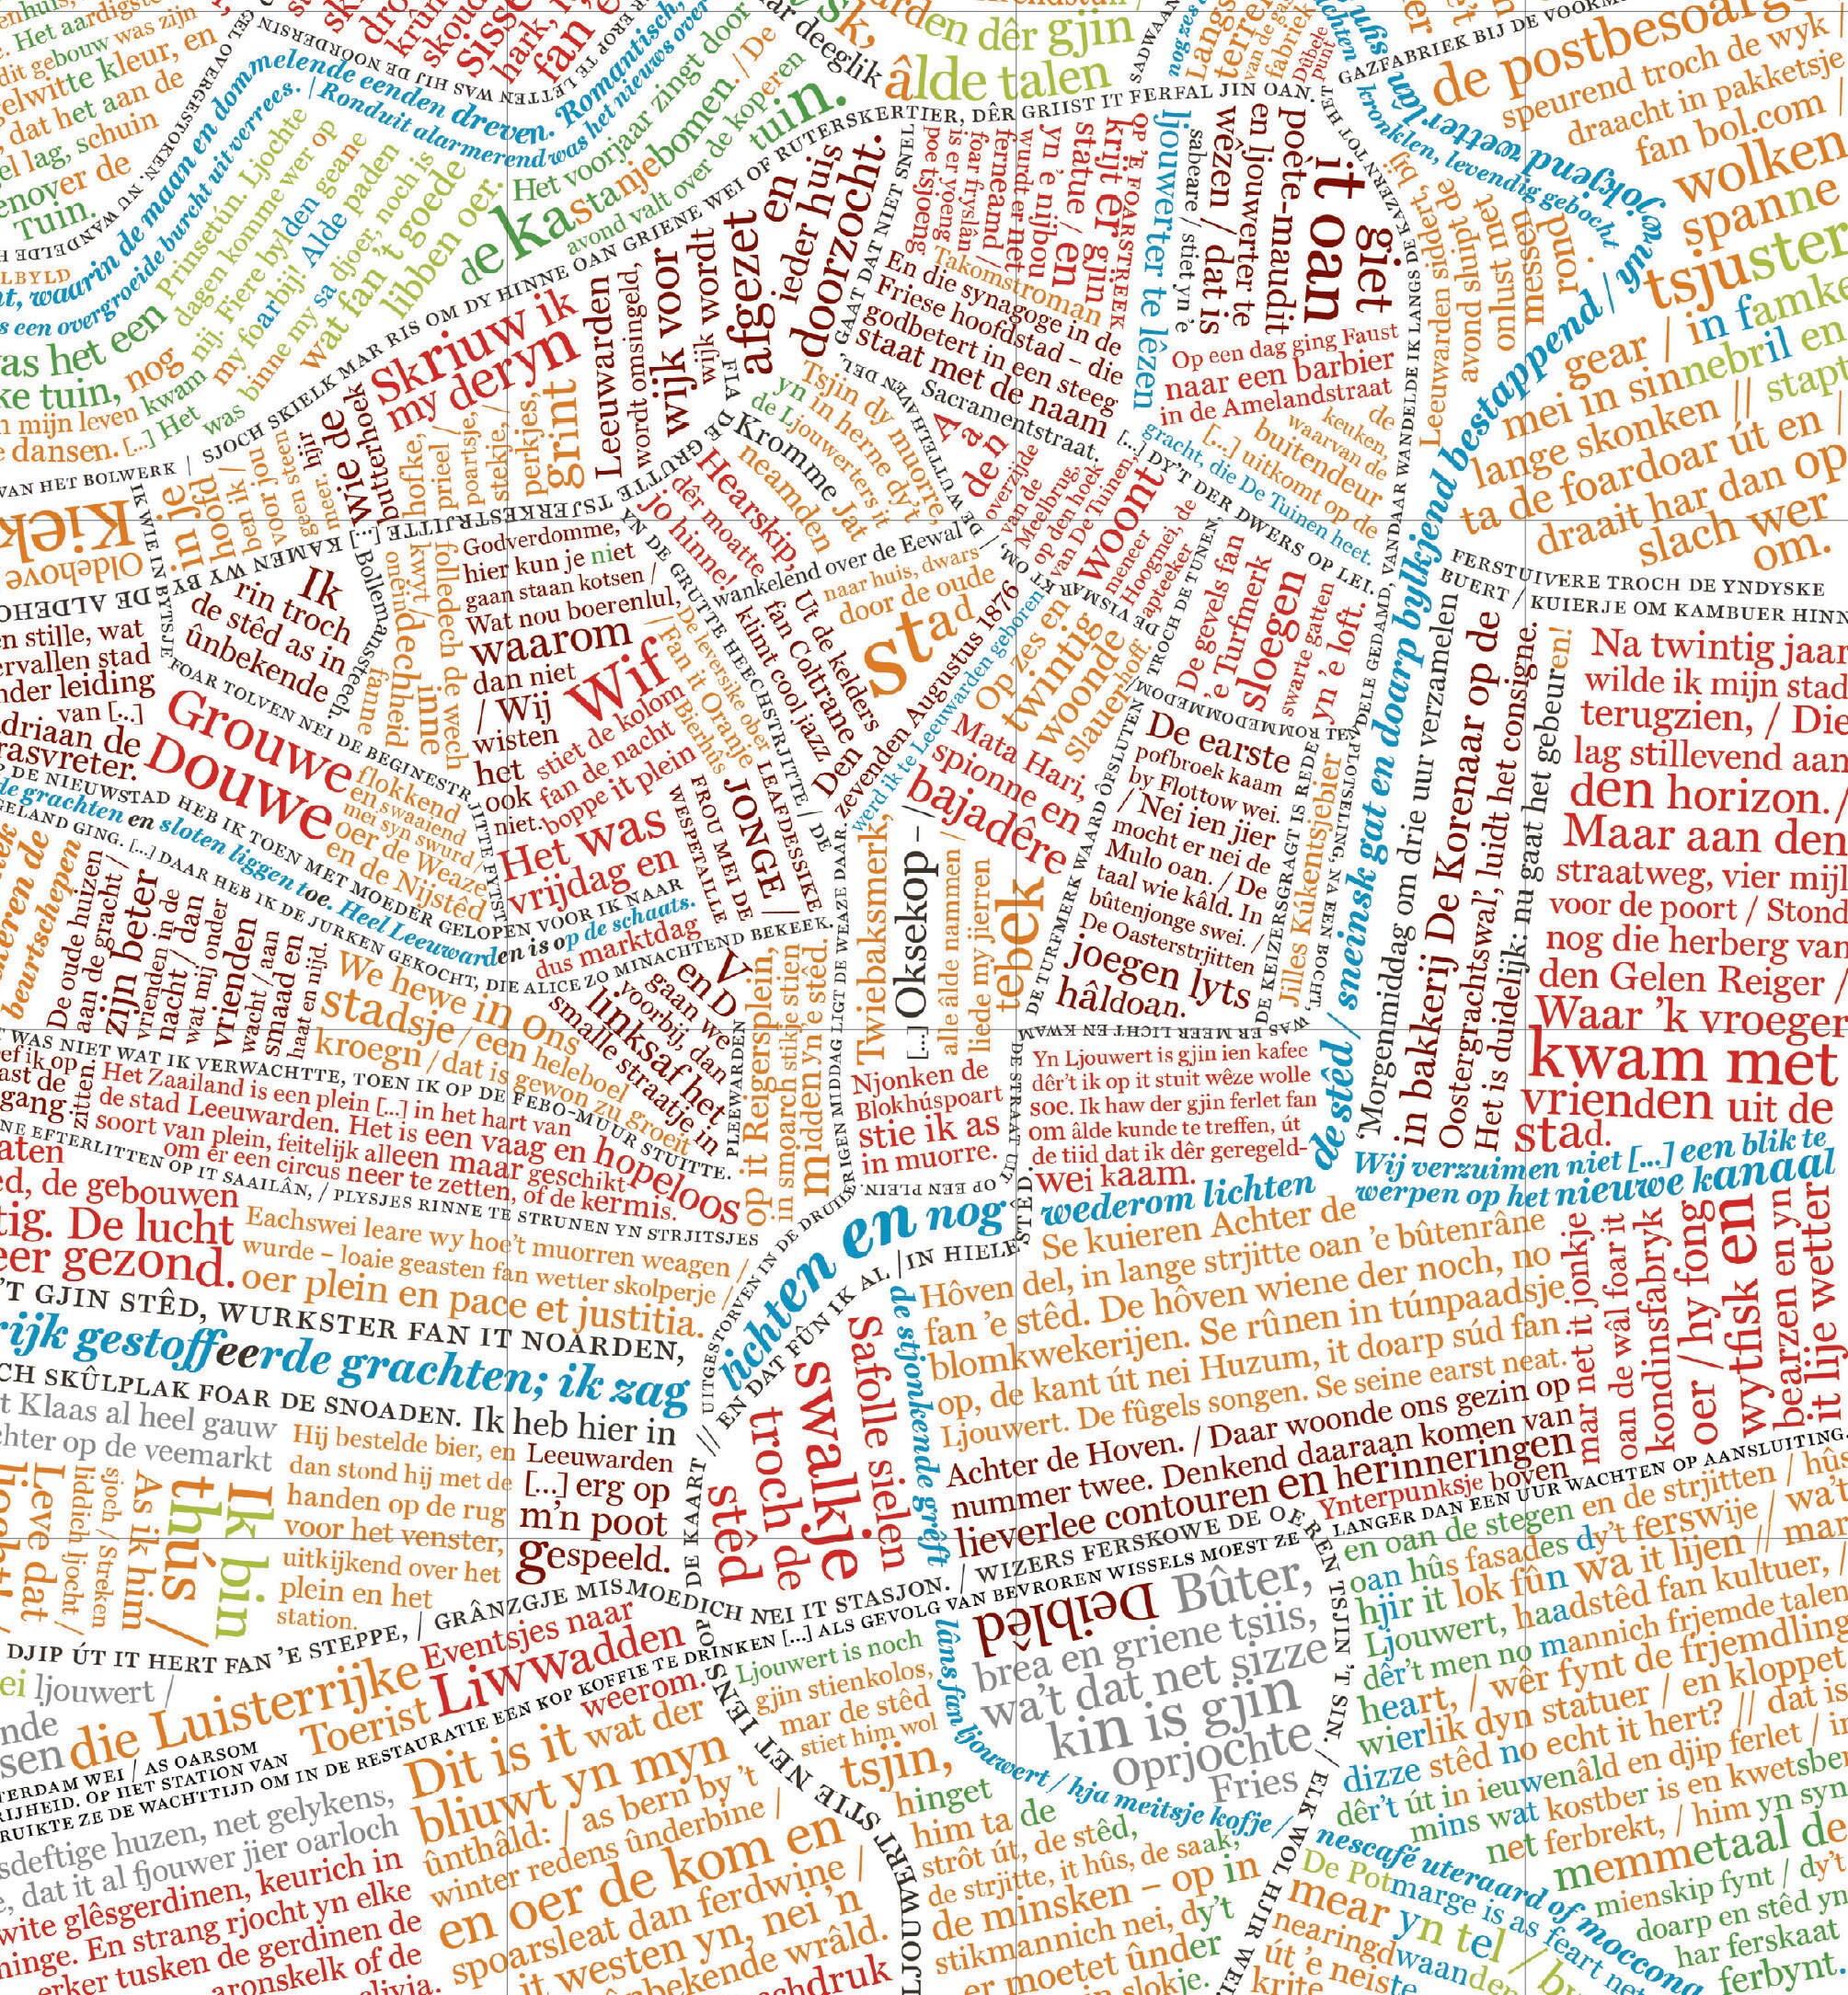 Het aardigste
dit gebouw was zijn
elwitte kleur, en
dat het aan de
el lag, schuin
enover de
Tuin.
waarin de maan en dommelende eenden dreven. Romantisch,
een overgroeide burcht uit verrees. | Ronduit alarmerend was het nieuws over
Prinsetún. Ljochte
dagen komme wer op
nij. Fiere bylden geane
my foarbij! Alde paden
was binne my sa djoer, noch is
wat fan 't goede
libben oer.
Het voorjaar zingt door
de kastanjebomen. / De
avond valt over de koperen
tuin.
as het een
ke tuin, nog
mijn leven kwam
dansen. [...] Het
VAN HET BOLWERK | SJOCH SKIELK MAR RIS OM DY HINNE OAN GRIENE WEI OF RUTERSKERTIER, DÊR GRIIST IT FERFAL JIN OAN.
arden dêr gjin
âlde talen
GAZFABRIEK BIJ DE
de postbesoarg
speurend troch de wyk
draacht in pakketsje
fan bol.com /
wolken
spanne
tsjuster
gear / in famke
mei in sinnebril en
lange skonken // stapt
ta de foardoar út en /
draait har dan op
slach wer
om.
Skriuw ik
my deryn
Wie de
butterhoek
hofke,
prieel /
poartsje,
stekje, /
perkjes,
grint
Leeuwarden
wordt omsingeld,
wijk voor
wijk wordt
afgezet
en
ieder huis
doorzocht.
GAAT DAT NIET SNEL
poe tsjoeng
is er yoeng
foar fryslân /
ferneamd /
wurdt er net
yn 'e nijbou
statue / en
krijt er gjin
OP 'E FOARSTREEK
Takomstroman
ljouwerter te lêzen
sabeare / stiet yn 'e
wêzen / dat is
en ljouwerter te
poète-maudit
it oan
giet
En die synagoge in de
Friese hoofdstad – die
godbetert in een steeg
staat met de naam
Sacramentstraat.
Op een dag ging Faust
naar een barbier
in de Amelandstraat
de
keuken,
waarvan de
buitendeur
[...] uitkomt op de
gracht, die De Tuinen heet.
[...] DY'T DER DWERS OP LEI.
Leeuwarden isoleert, bij
avond slupt de
onlust met
messen
rond
jokjend wetter lâns
kronklen, levendig gebocht
Tsjin dy muorre,
yn in herne dy't
de Ljouwerters it
Kromme Jat
neamden
Aan
den
overzijde
van de
Meelbrug,
op den hoek
van De Tuinen,
woont
meneer
Hoogmei, de
apteeker
TROCH DE TUNEN,
Kiek
Oldehove
in je
hoofd
ben ik /
voor jou
geen steen
meer.
Ik
rin troch
de stêd as in
ûnbekende.
Bollemanssteech.
fanne
oneindechheid
kwyt /
inne
folledech de wech
Godverdomme,
hier kun je niet
gaan kotsen /
Wat nou boerenlul,
waarom
dan niet
/ Wij
wisten
het
ook
niet.
Hearskip,
dêr moatte
jo hinne!
TSJERKESTRJITTE
YN DE GRUTTE HEECHSTRJITTE / DE
wankelend over de Eewal
naar huis, dwars
door de oude
stad
Ut de kelders
fan Coltrane
klinkt cool jazz
Den
zevenden Augustus 1876
werd ik te Leeuwarden geboren
Op zes en
twintig
woonde
Slauerhoff
De gevels fan
'e Turfmerk
sloegen
swarte gatten
yn 'e loft.
Wif
stiet de kolom
fan de nacht
boppe it plein
/ Fan it Oranje
Bierhûs
De leversike ober
Het was
vrijdag en
dus marktdag
WESPETAILLE
FROU MEI DE
JONGE /
LEAFDESSIKE
n stille, wat
ervallen stad
nder leiding
van [...]
driaan de
rasvreter.
Grouwe
Douwe
flokkend
en swaaiend
mei syn swurd /
oer de Weaze
en de Nijstêd
FOAR TOLVEN NEI DE BEGINESTRJITTE FYTST
DE NIEUWSTAD HEB IK TOEN MET MOEDER GELOPEN VOOR IK NAAR
de grachten en sloten liggen toe. Heel Leeuwarden is op de schaats.
GELAND GING. [...] DAAR HEB IK DE JURKEN GEKOCHT, DIE ALICE ZO MINACHTEND BEKEEK.
Mata Hari,
spionne en
bajadêre
Twiebaksmerk,
[...] Oksekop – /
alle âlde nammen /
liede my jierren
tebek
De earste
pofbroek kaam
by Flottow wei.
/ Nei ien jier
mocht er nei de
Mulo oan. / De
taal wie kâld. In
bûtenjonge swei. /
De Oasterstrjitten
joegen lyts
hâldoan.
DE TURFMERK WAARD ÔFSLUTEN
DE KEIZERSGRACHT IS REDE
Jilles Kûkentsjebier
PLOTSELING, NA EEN BOCHT,
WAS ER MEER LICHT EN KWAM
DE STRAAT UIT
OP EEN PLEIN.
de stêd / sneinsk gat en doarp bylkjend bestappend / yn
'Morgenmiddag om drie uur verzamelen
in bakkerij De Korenaar op de
Oostergrachtswal', luidt het consigne.
Het is duidelijk: nu gaat het gebeuren!
FERSTUIVERE TROCH DE YNDYSKE
BUERT / KUIERJE OM KAMBUER HINN
Na twintig jaar
wilde ik mijn stad
terugzien, / Die
lag stillevend aan
den horizon. /
Maar aan den
straatweg, vier mijl
voor de poort / Stond
nog die herberg van
den Gelen Reiger /
Waar 'k vroeger
kwam met
vrienden uit de
stad.
Wij verzuimen niet [...] een blik te
werpen op het nieuwe kanaal
De oude huizen
aan de gracht /
zijn beter
vrienden in de
nacht / dan
wat mij onder
vrienden
wacht / aan
smaad en
haat en nijd.
We hewe in ons
stadsje / een heleboel
kroegn / dat is gewon zu groeit
V
en D
gaan we
voorbij, dan
linksaf het
smalle straatje in
WAS NIET WAT IK VERWACHTTE, TOEN IK OP DE FEBO-MUUR STUITTE.
ef ik op
ast de
gang
zitten.
Het Zaailand is een plein [...] in het hart van
de stad Leeuwarden. Het is een vaag en hopeloos
soort van plein, feitelijk alleen maar geschikt
om er een circus neer te zetten, of de kermis.
NE EFTERLITTEN OP IT SAAILÂN, / PLYSJES RINNE TE STRUNEN YN STRJITSJES
PLEEWARDEN
op it Reigersplein,
in smoarch stikje stien
midden yn 'e stêd.
UITGESTORVEN IN DE DRUILERIGEN MIDDAG LIGT DE WEAZE DAAR.
Njonken de
Blokhúspoart
stie ik as
in muorre.
Yn Ljouwert is gjin ien kafee
dêr't ik op it stuit wêze wolle
soe. Ik haw der gjin ferlet fan
om âlde kunde te treffen, út
de tiid dat ik dêr geregeld-
wei kaam.
aten
ed, de gebouwen
tig. De lucht
eer gezond.
Eachswei leare wy hoe't muorren weagen /
wurde – loaie geasten fan wetter skolperje /
oer plein en pace et justitia.
'T GJIN STÊD, WURKSTER FAN IT NOARDEN,
rijk gestoffeerde grachten; ik zag
lichten en nog wederom lichten
CH SKÛLPLAK FOAR DE SNOADEN. Ik heb hier in
Leeuwarden
[...] erg op
m'n poot
gespeeld.
t Klaas al heel gauw
chter op de veemarkt
Hij bestelde bier, en
dan stond hij met de
handen op de rug
voor het venster,
uitkijkend over het
plein en het
station.
Leve dat
liddich ljocht /
sjoch / Streken /
As ik him
thús /
Ik bin
// EN DAT FÛN IK AL / IN HIELE STÊD.
Safolle sielen
swalkje
troch de
stêd
de stjonkende grêft
lâns fan ljouwert / hja meitsje kofje /
nescafé uteraard of moccona
Se kuieren Achter de
Hôven del, in lange strjitte oan 'e bûtenrâne
fan 'e stêd. De hôven wiene der noch, no
blomkwekerijen. Se rûnen in túnpaadsje
op, de kant út nei Huzum, it doarp súd fan
Ljouwert. De fûgels songen. Se seine earst neat.
Achter de Hoven. / Daar woonde ons gezin op
nummer twee. Denkend daaraan komen van
lieverlee contouren en herinneringen
Ynterpunksje boven
mar net it jonkje
oan de wâl foar it
kondinsfabryk
oer / hy fong
wytfisk en
bearzen en yn
it lije wetter
DJIP ÚT IT HERT FAN 'E STEPPE, / GRÂNZGJE MISMOEDICH NEI IT STASJON. / WIZERS FERSKOWE DE OEREN TSJIN 'T SIN. / ELK WOL HJIR WEI.
RUIKTE ZE DE WACHTTIJD OM IN DE RESTAURATIE EEN KOP KOFFIE TE DRINKEN [...] ALS GEVOLG VAN BEVROREN WISSELS MOEST ZE LANGER DAN EEN UUR WACHTEN OP AANSLUITING.
ei ljouwert /
die Luisterrijke
Toerist
Eventsjes naar
Liwwadden
weerom.
TERDAM WEI / AS OARSOM
RIJHEID. OP HET STATION VAN
Deiblêd
Bûter,
brea en griene tsiis,
wa't dat net sizze
kin is gjin
oprjochte
Fries
sdeftige huzen, net gelykens,
dat it al fjouwer jier oarloch
wite glêsgerdinen, keurich in
ninge. En strang rjocht yn elke
erker tusken de gerdinen de
aronskelk of de
livia.
Dit is it wat der
bliuwt yn myn
ûnthâld: / as bern by 't
winter redens ûnderbine /
en oer de kom en
spoarsleat dan ferdwine /
it westen yn, nei 'n
nbekende wrâld.
Ljouwert is noch
gjin stienkolos,
mar de stêd
stiet him wol
tsjin,
hinget
him ta de
strôt út, de stêd,
de strjitte, it hûs, de saak,
de minsken – op in
stikmannich nei, dy't
er moetet ûnder
slokje.
SOP IENS NET STIE
en oan de stegen en de strjitten / hûs
oan hûs fasades dy't ferswije / wa't
hjir it lok fûn wa it lijen // mar
Ljouwert, haadstêd fan kultuer, /
dêr't men no mannich frjemde talen
heart, / wêr fynt de frjemdling
wierlik dyn statuer / en kloppet
dizze stêd no echt it hert? // dat is
dêr't út in ieuwenâld en djip ferlet / in
mins wat kostber is en kwetsber
net ferbrekt, / him yn syn
memmetaal de
mienskip fynt / dy't
doarp en stêd yn
har ferskaat
ferbynt.
De Potmarge is as feart net
mear yn tel /
nearingdwaander
út 'e neiste
krite